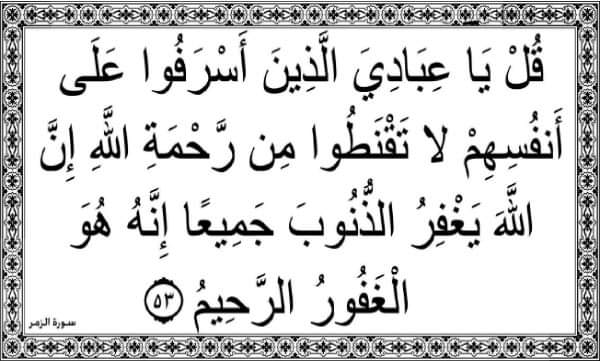 قُلْ يَا عِبَادِيَ الَّذِينَ أَسْرَفُوا عَلَى
أَنفُسِهِمْ لَا تَقْنَطُوا مِن رَّحْمَةِ اللَّهِ إِنَّ
اللَّهَ يَغْفِرُ الذُّنُوبَ جَمِيعًا إِنَّهُ هُوَ
الْغَفُورُ الرَّحِيمُ ٥٣
سورة الزمر